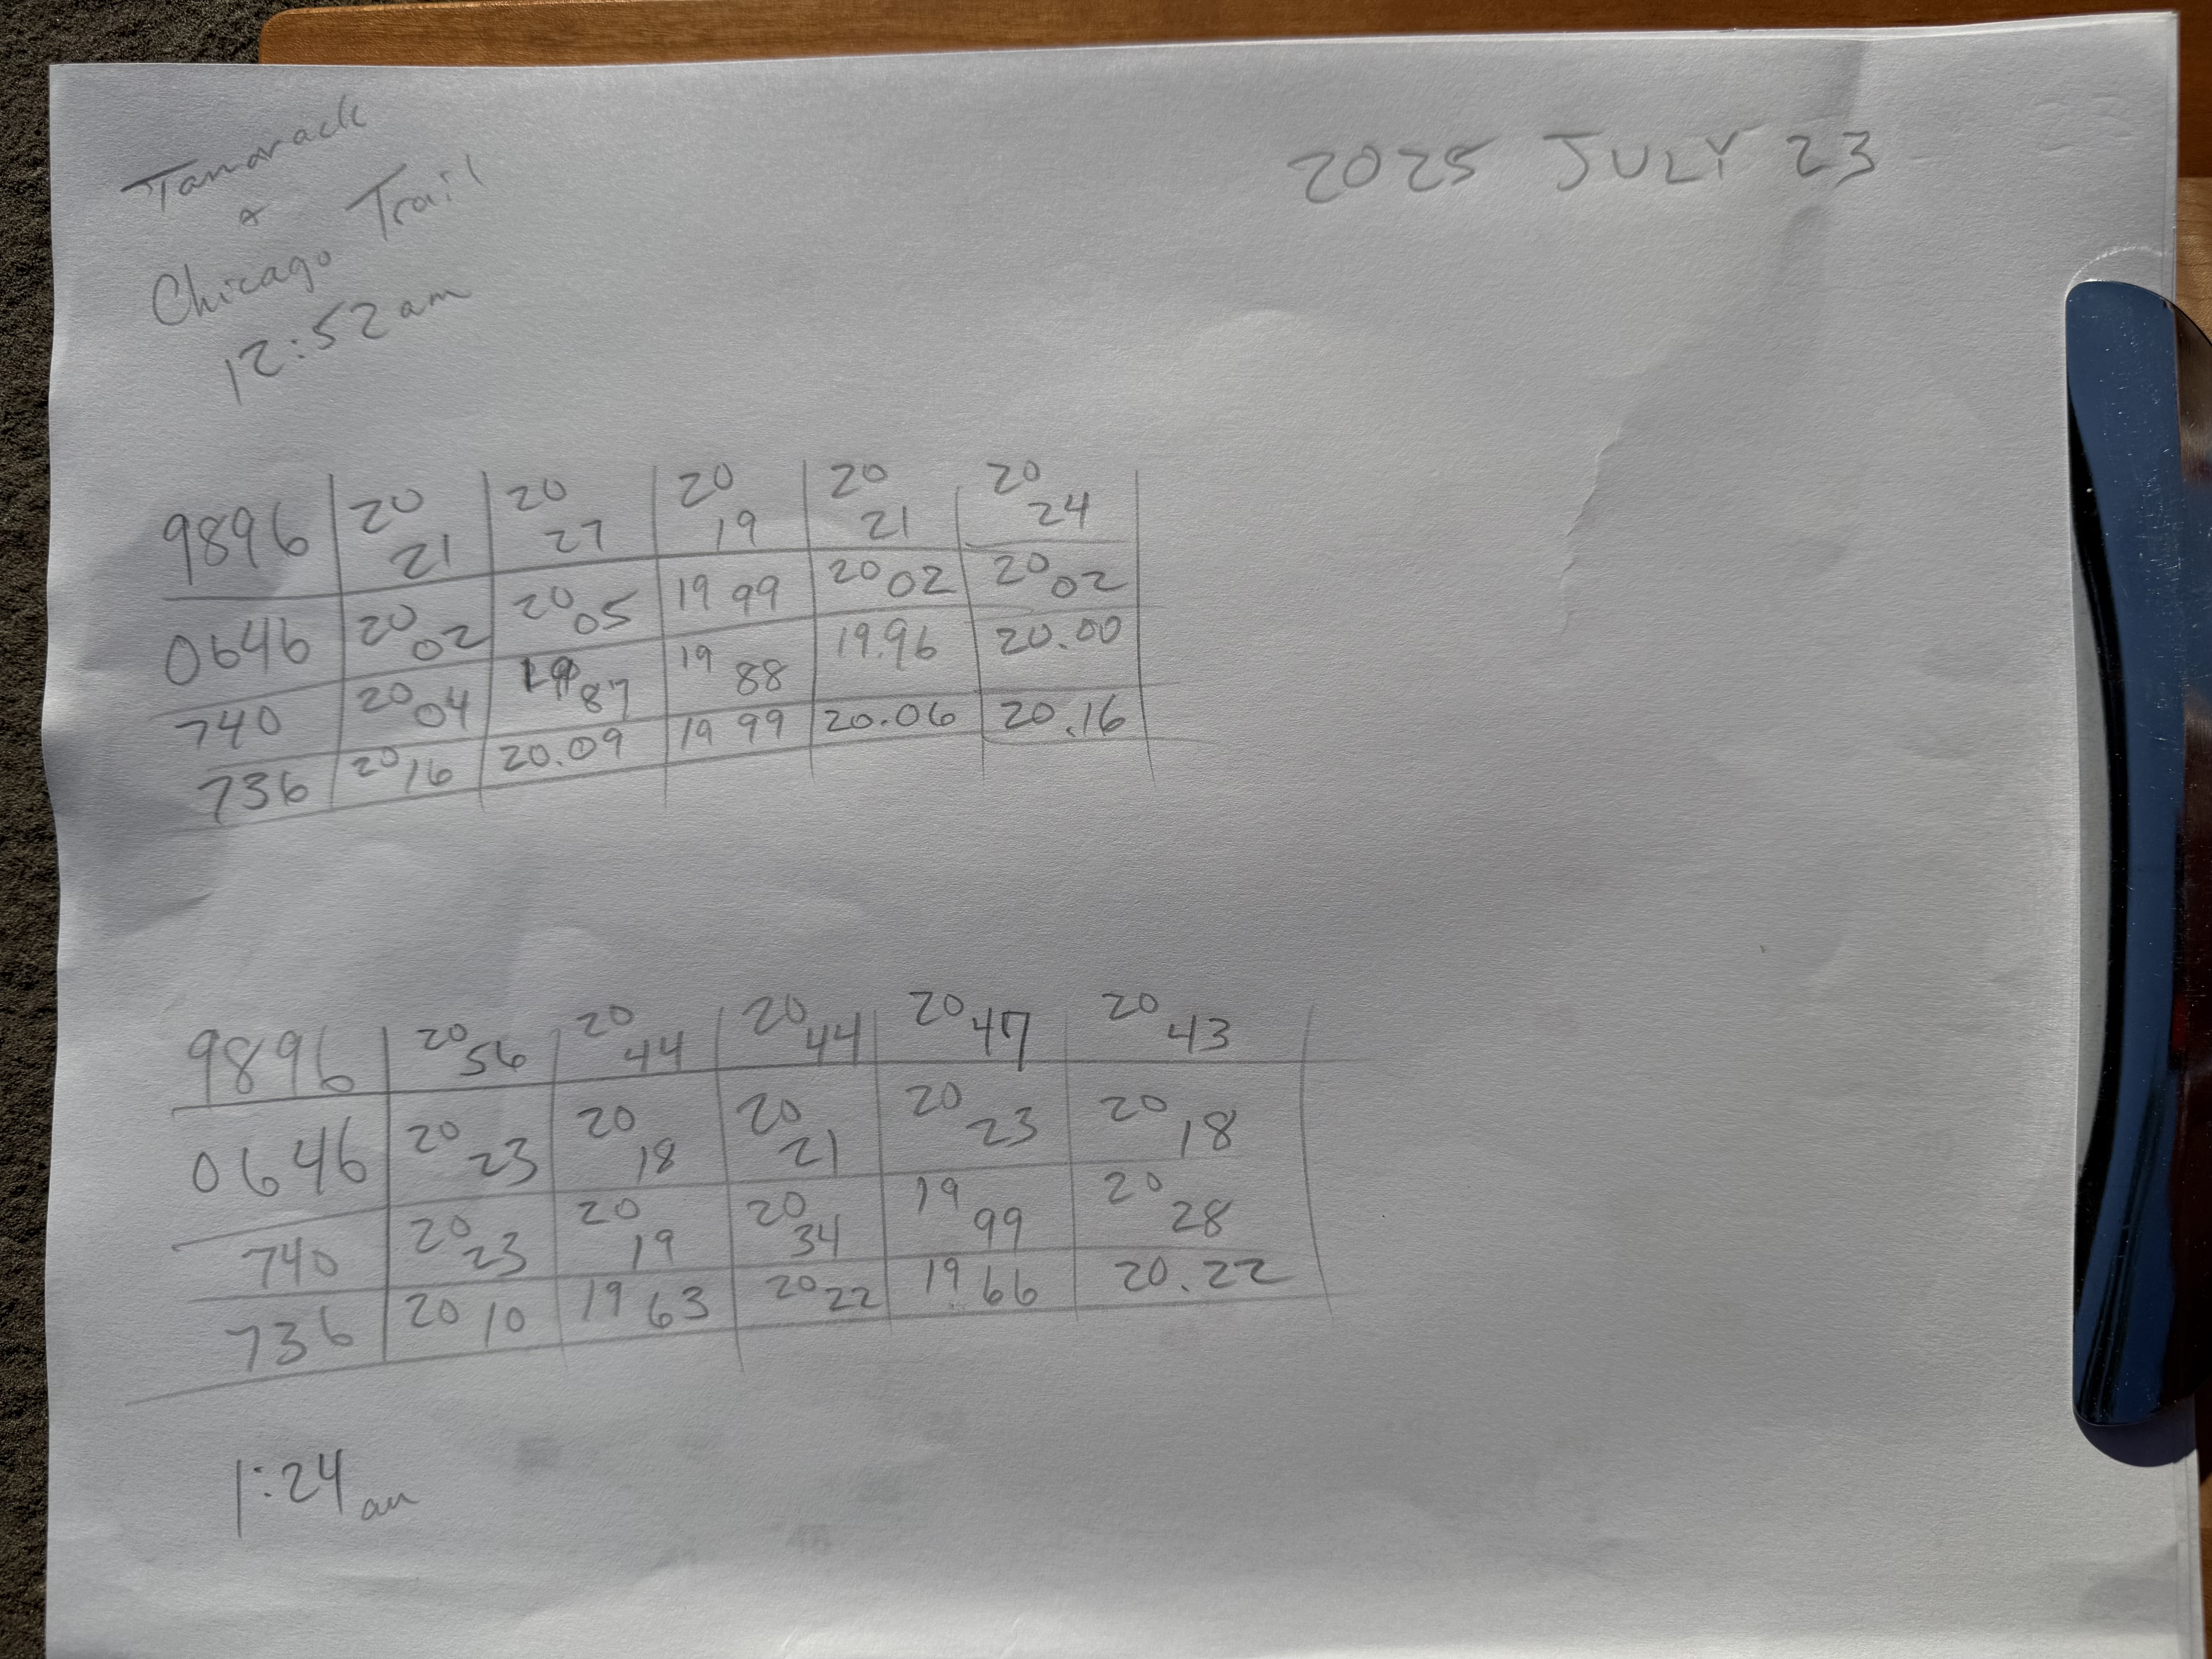 Tamarack
&
Chicago Trail
12:52am
2025 JULY 23
9896 20 21 20 27 20 19 20 21 20 24
0646 20 02 20 05 19 99 20 02 20 02
740 20 04 19 87 19 88 19.96 20.00
736 20 16 20.09 19 99 20.06 20.16
9896 20 56 20 44 20 44 20 47 20 43
0646 20 23 20 18 20 21 20 23 20 18
740 20 23 20 19 20 34 19 99 20 28
736 20 10 19 63 20 22 19.66 20.22
1:24am